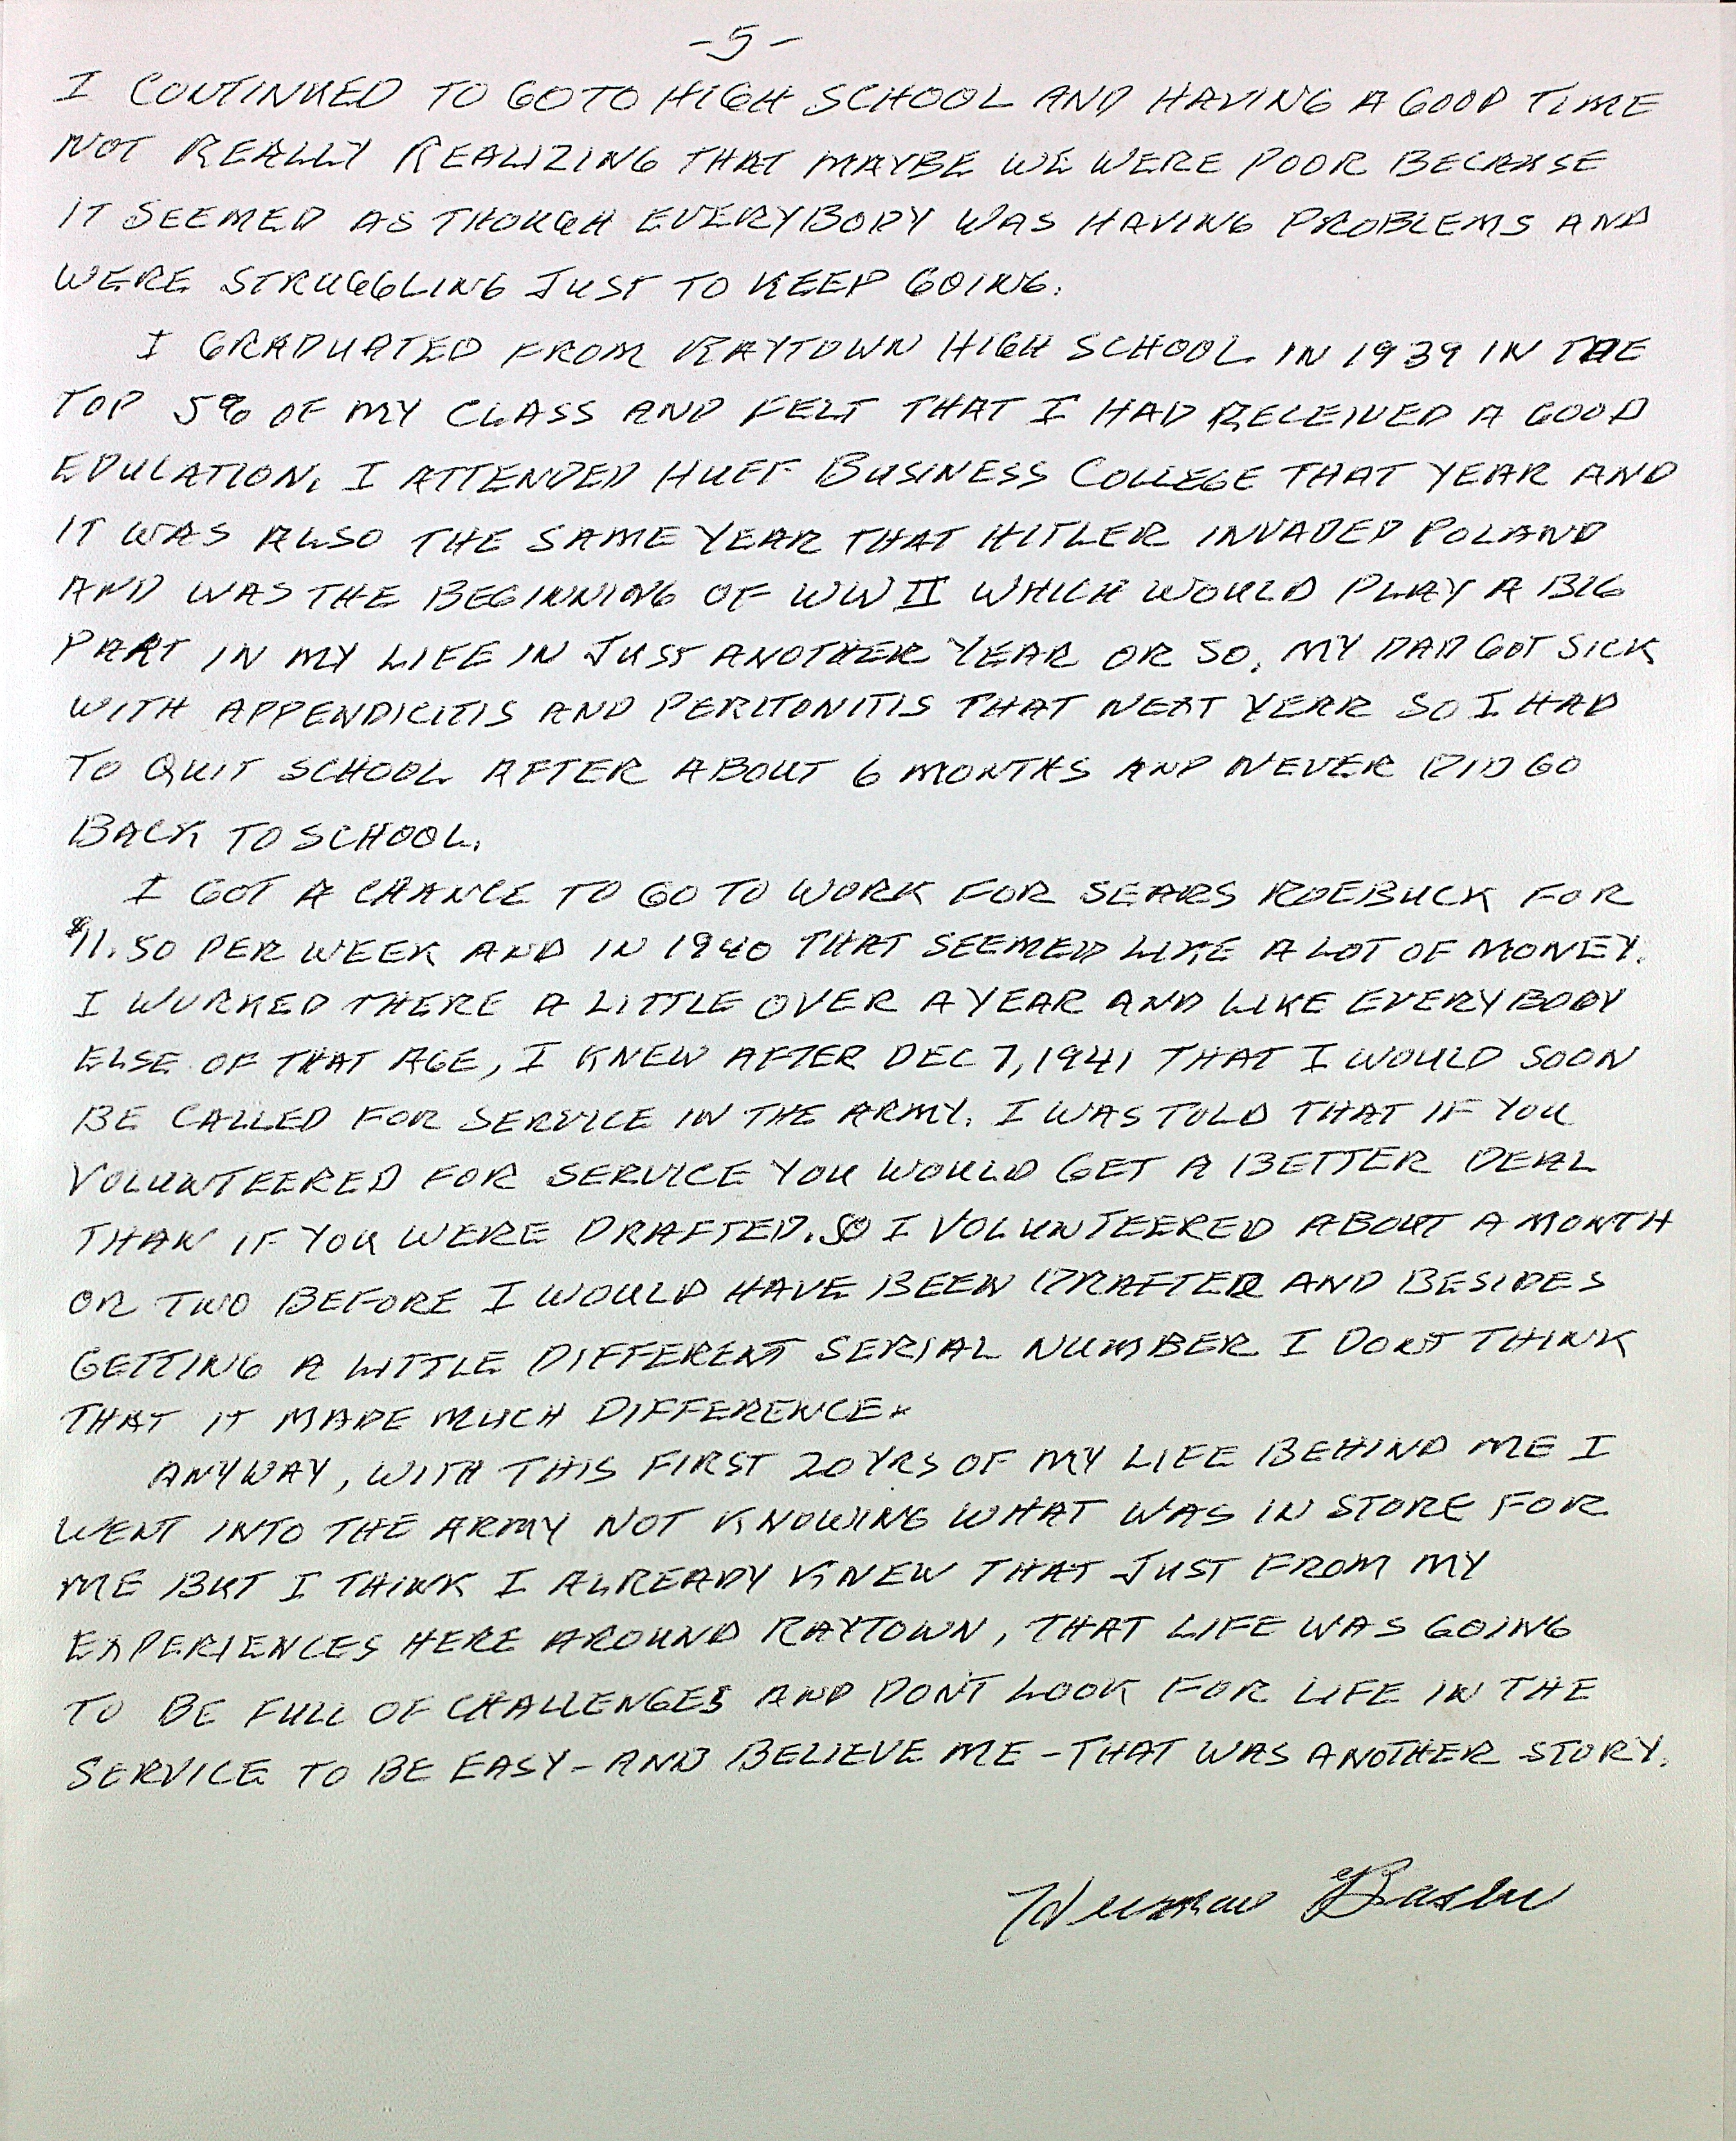 -5-
I CONTINUED TO GO TO HIGH SCHOOL AND HAVING A GOOD TIME
NOT REALLY REALIZING THAT MAYBE WE WERE POOR BECAUSE
IT SEEMED AS THOUGH EVERYBODY WAS HAVING PROBLEMS AND
WERE STRUGGLING JUST TO KEEP GOING.
I GRADUATED FROM RAYTOWN HIGH SCHOOL IN 1939 IN THE
TOP 5% OF MY CLASS AND FELT THAT I HAD RECEIVED A GOOD
EDUCATION. I ATTENDED HUFF BUSINESS COLLEGE THAT YEAR AND
IT WAS ALSO THE SAME YEAR THAT HITLER INVADED POLAND
AND WAS THE BEGINNING OF WW II WHICH WOULD PLAY A BIG
PART IN MY LIFE IN JUST ANOTHER YEAR OR SO. MY DAD GOT SICK
WITH APPENDICITIS AND PERITONITIS THAT NEXT YEAR SO I HAD
TO QUIT SCHOOL AFTER ABOUT 6 MONTHS AND NEVER DID GO
BACK TO SCHOOL.
I GOT A CHANCE TO GO TO WORK FOR SEARS ROEBUCK FOR
$11.50 PER WEEK AND IN 1940 THAT SEEMED LIKE A LOT OF MONEY.
I WORKED THERE A LITTLE OVER A YEAR AND LIKE EVERYBODY
ELSE OF THAT AGE, I KNEW AFTER DEC 7, 1941 THAT I WOULD SOON
BE CALLED FOR SERVICE IN THE ARMY. I WAS TOLD THAT IF YOU
VOLUNTEERED FOR SERVICE YOU WOULD GET A BETTER DEAL
THAN IF YOU WERE DRAFTED. SO I VOLUNTEERED ABOUT A MONTH
OR TWO BEFORE I WOULD HAVE BEEN DRAFTED AND BESIDES
GETTING A LITTLE DIFFERENT SERIAL NUMBER I DON'T THINK
THAT IT MADE MUCH DIFFERENCE.
ANYWAY, WITH THIS FIRST 20 YRS OF MY LIFE BEHIND ME I
WENT INTO THE ARMY NOT KNOWING WHAT WAS IN STORE FOR
ME BUT I THINK I ALREADY KNEW THAT JUST FROM MY
EXPERIENCES HERE AROUND RAYTOWN, THAT LIFE WAS GOING
TO BE FULL OF CHALLENGES AND DON'T LOOK FOR LIFE IN THE
SERVICE TO BE EASY - AND BELIEVE ME - THAT WAS ANOTHER STORY.
Herman